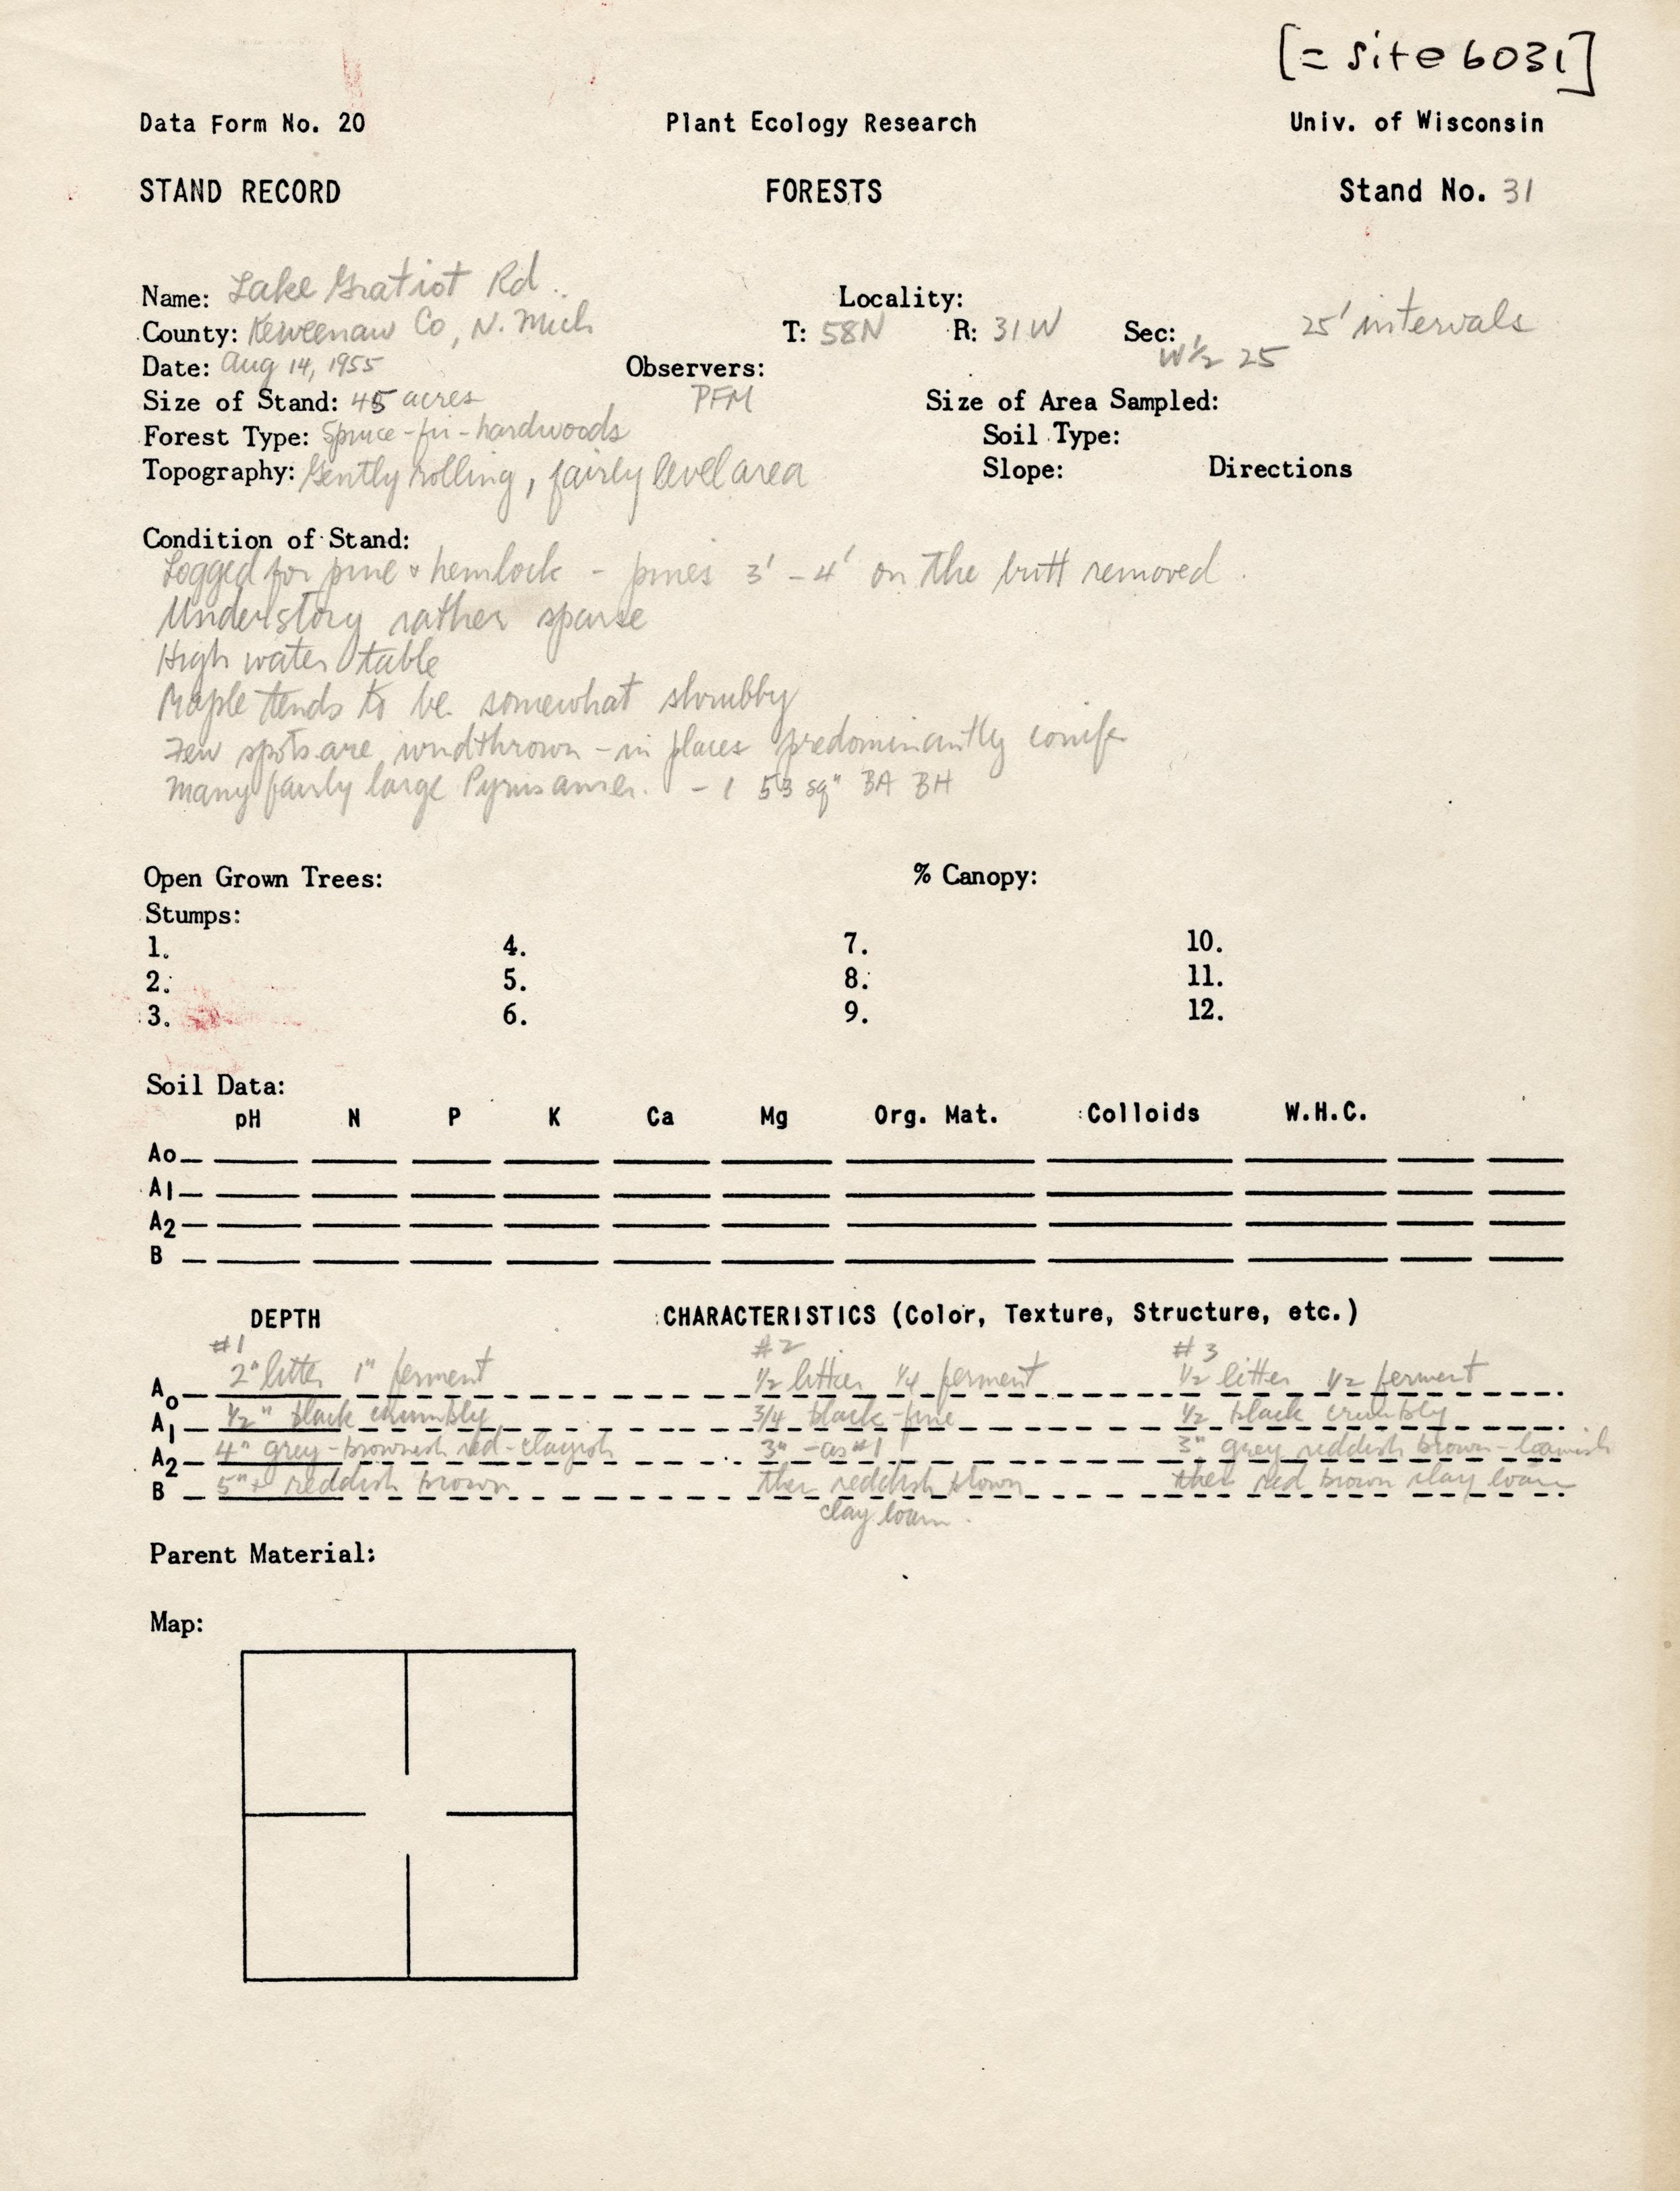 [= Site 6031]
Data Form No. 20 Plant Ecology Research Univ. of Wisconsin
STAND RECORD FORESTS Stand No. 31
Name: Lake Gratiot Rd. Locality:
County: Keweenaw Co, N. Mich T: 58N R: 31W Sec: W 1/2 25 25' intervals
Date: Aug 14, 1955 Observers: PFM
Size of Stand: 45 acres Size of Area Sampled:
Forest Type: Spruce-fir-hardwoods Soil Type:
Topography: Gently rolling, fairly level area Slope: Directions
Condition of Stand:
Logged for pine & hemlock - pines 3' - 4' on the butt removed.
Understory rather sparse
High water table
Maple tends to be somewhat shrubby
Few spots are windthrown - in places predominantly conifer
Many fairly large Pyrus amer. - 1 53 sq" BA BH
Open Grown Trees: % Canopy:
Stumps:
1. 4. 7. 10.
2. 5. 8. 11.
3. 6. 9. 12.
Soil Data:
pH N P K Ca Mg Org. Mat. Colloids W.H.C.
Ao
A1
A2
B
DEPTH CHARACTERISTICS (Color, Texture, Structure, etc.)
#1 #2 #3
Ao 2" litter 1" ferment 1/2 litter 1/4 ferment 1/2 litter 1/2 ferment
A1 1/2" black crumbly 3/4 black-fine 1/2 black crumbly
A2 4" grey-brownish red-clayish 3" -as #1 3" grey reddish brown-loamish
B 5"+ reddish brown then reddish brown then red brown clay loam
clay loam.
Parent Material:
Map: